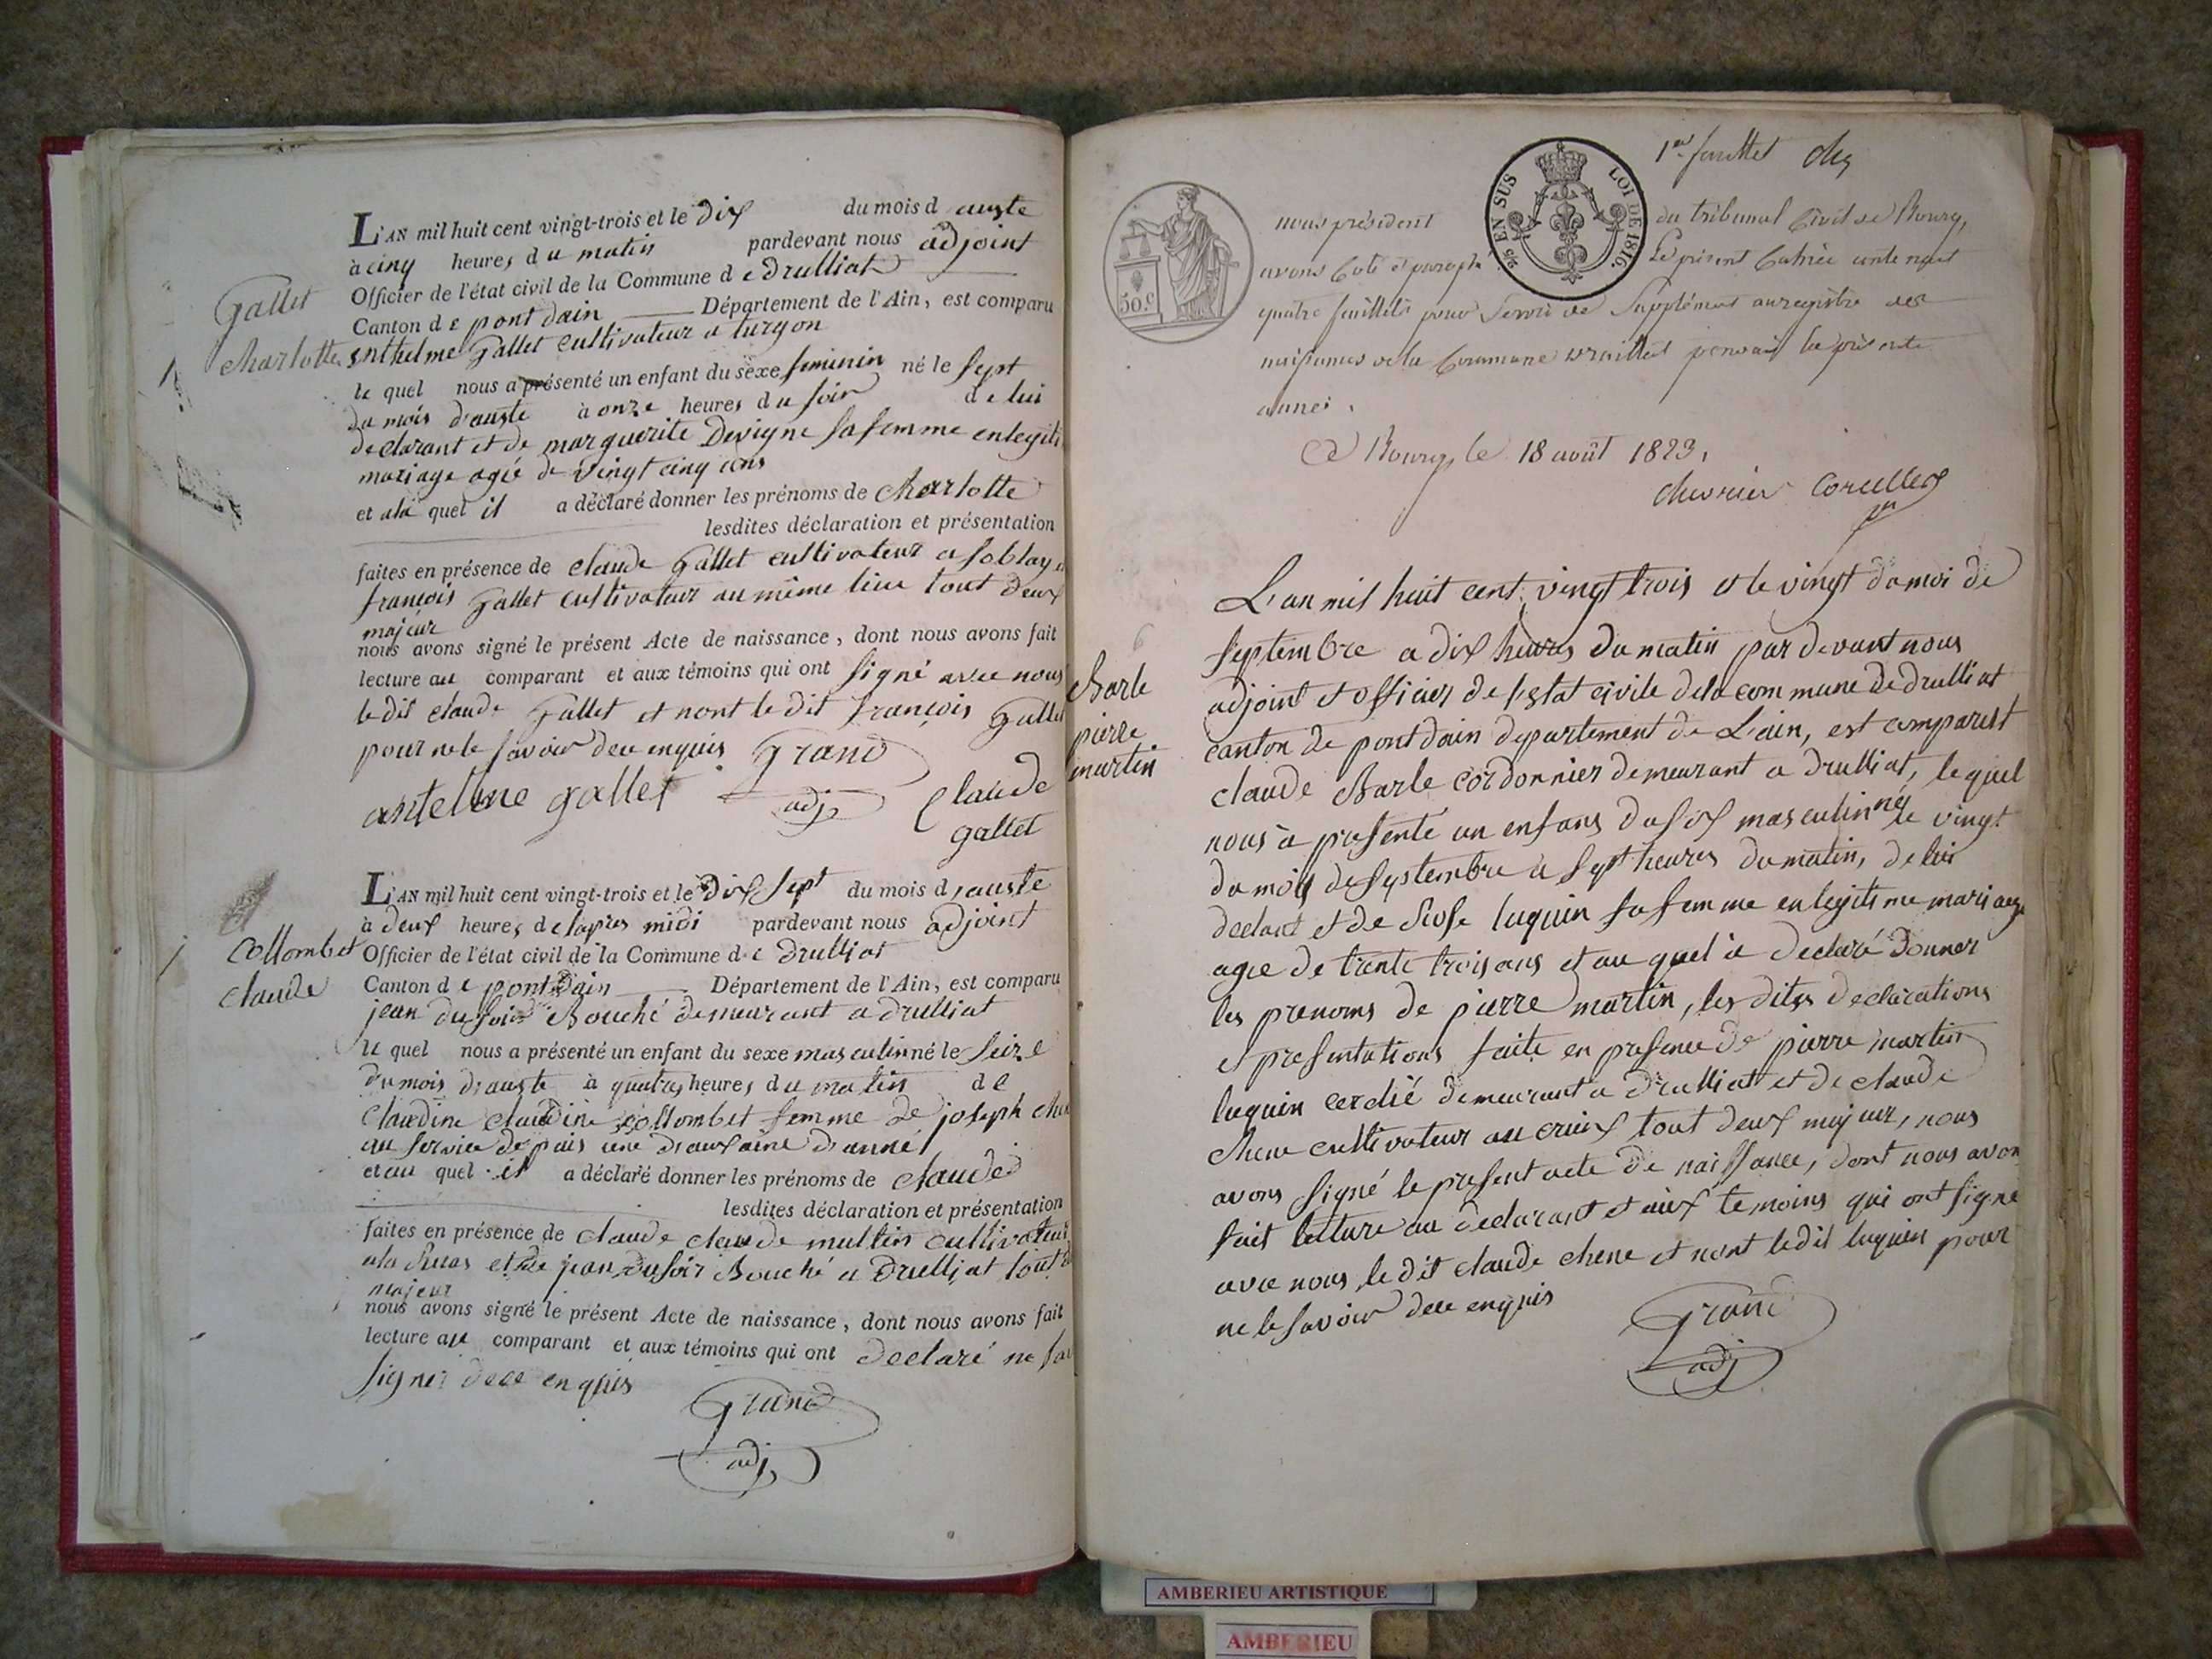 Gallet
Charlotte
L'AN mil huit cent vingt-trois et le dix du mois d auste
à cinq heures du matin pardevant nous adjoint
Officier de l'état civil de la Commune de drulliat
Canton de pont dain Département de l'Ain, est comparu
Gallet cultivateur a turgon
le quel nous a présenté un enfant du sexe feminin né le sept
du mois d'auste à onze heures du soir de lui
declarant et de marguerite Devigne sa femme en legiti
mariage agée de vingt cinq ans
et ala quel il a déclaré donner les prénoms de Charlotte
lesdites déclaration et présentation
faites en présence de claude Gallet cultivateur a soblay
françois Gallet cultivateur au même lieu tout deux
majeur
nous avons signé le présent Acte de naissance, dont nous avons fait
lecture au comparant et aux témoins qui ont signé avec nous
le dit claude Gallet et nont le dit françois Gallet
pour ne le savoir dece enquis Grand
adj
antelme gallet
Claude
gallet
Collombet
Claude
L'AN mil huit cent vingt-trois et le dix sept du mois d'auste
à deux heures delapres midi pardevant nous adjoint
Officier de l'état civil de la Commune de Drulliat
Canton de pont Dain Département de l'Ain, est comparu
jean dusoir Bouché demeurant a drulliat
le quel nous a présenté un enfant du sexe masculin né le seize
du mois d'auste à quatre heures du matin de
Claudine claudine collombet femme de joseph
au service depuis une d'année
et au quel il a déclaré donner les prénoms de claude
lesdites déclaration et présentation
faites en présence de claude claude multin cultivateur
et de jean dusoir Bouché a Drulliat tout
majeur
nous avons signé le présent Acte de naissance, dont nous avons fait
lecture au comparant et aux témoins qui ont declaré ne
signer dece enquis
Grand
adj
1er feuillet
EN SUS LOI DE 1816.
50.c
nous président du tribunal Civil de Bourg,
avons coté et paraphé le présent Cahier contenant
quatre feuillets pour servir de Supplément au registre des
naissances de la Commune drulliat pendant la présente
année.
A Bourg, le 18 août 1823.
Barle
pierre
martin
L'an mil huit cent vingt trois et le vingt du moi de
septembre a dix heures du matin par devant nous
adjoint et officier de l'estat civile dela commune de drulliat
canton de pont dain departement de L'ain, est comparest
claude Barle cordonnier demeurant a drulliat, le quel
nous à presenté un enfans du sex masculin né le vingt
du mois de septembre a sept heures du matin, de lui
declant et de luquin sa femme en legitime mariage
agée de trente trois ans et au quel à declaré donner
les prenoms de pierre martin, les dites declarations
et presentations faite en presence de pierre martin
luquin demeurant a drulliat et de claude
chene cultivateur au tout deux majeur, nous
avons signé le present acte de naissance, dont nous avon
fait letture au declarant et aux temoins qui ont signe
avec nous le dit claude chene et nont ledit luquin pour
ne le savoir dece enquis
Grand
adj
AMBERIEU ARTISTIQUE
AMBERIEU